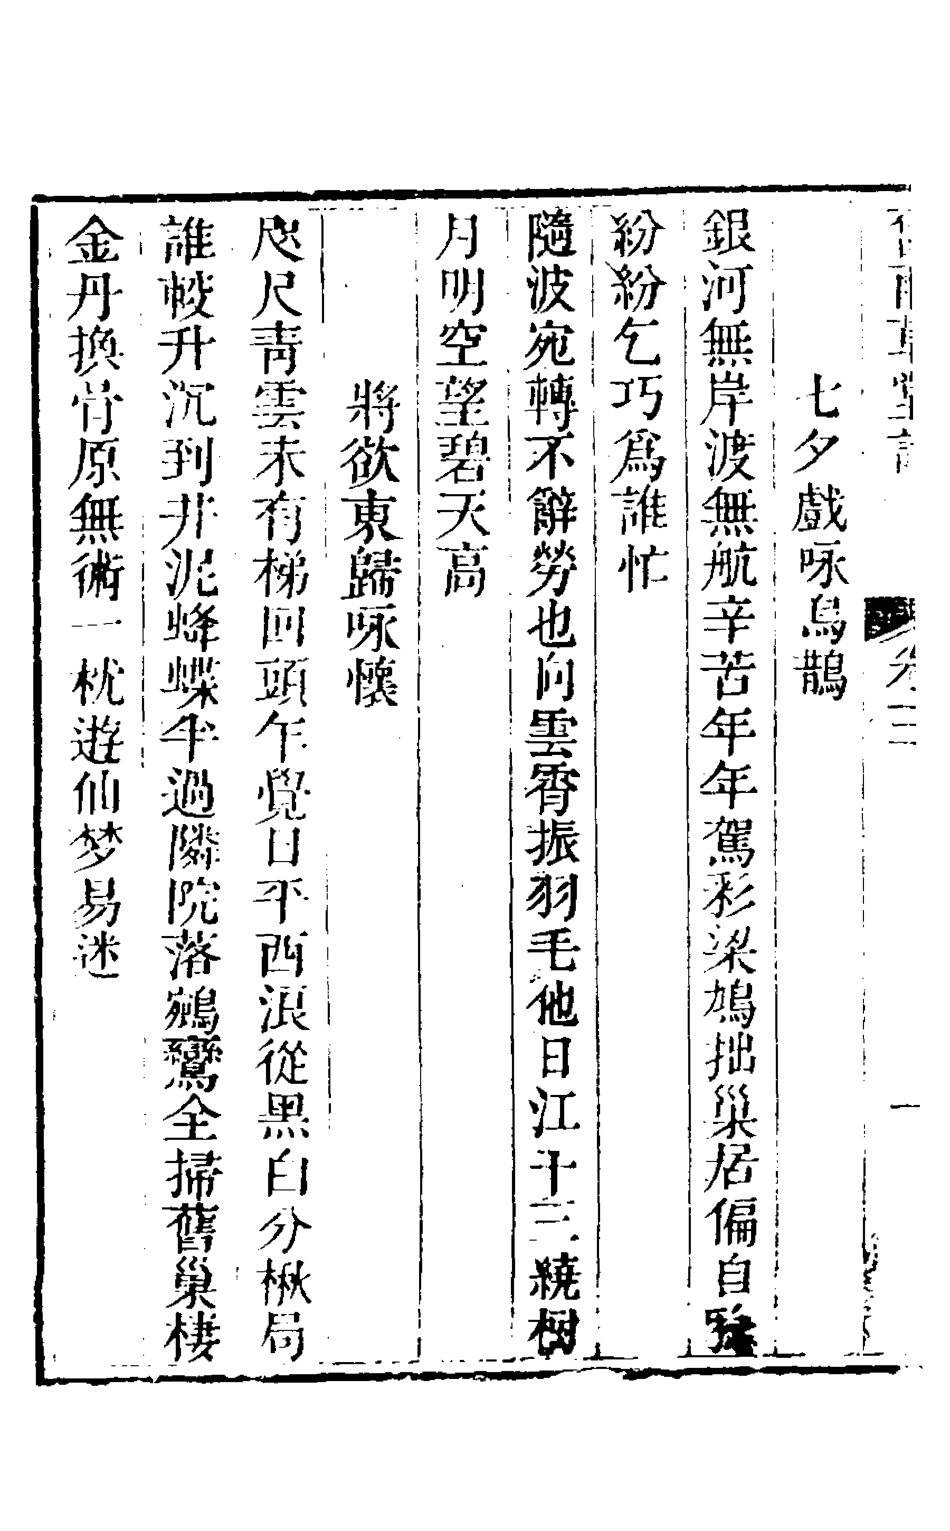 七夕戲咏烏鵲
銀河無岸渡無航辛苦年年駕彩梁鳩拙巢居偏自
紛紛乞巧爲誰忙
隨波宛轉不辭勞也向雲霄振羽毛他日江干三繞樹
月明空望碧天高
將欲東歸咏懷
咫尺青雲未有梯回頭乍覺日平西浪從黑白分楸局
誰較升沉到井泥蜂蝶半過隣院落鵷鸞全掃舊巢棲
金丹換骨原無術一枕遊仙梦易迷